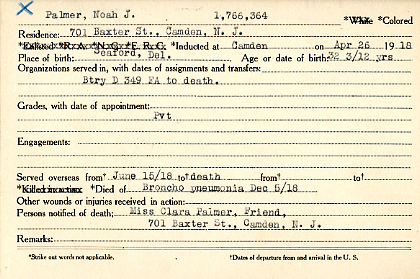 Palmer, Noah J. 1,766,364 *White *Colored
Residence: 701 Baxter St., Camden, N. J.
*Enlisted *R. A. *N. G. *E. R. C. *Inducted at Camden on Apr 26 1918
Place of birth: Seaford, Del. Age or date of birth: 32 3/12 yrs
Organizations served in, with dates of assignments and transfers:
Btry D 349 FA to death.
Grades, with date of appointment:
Pvt
Engagements:
Served overseas from† June 15/18 to† death from† to†
*Killed in action *Died of Broncho pneumonia Dec 5/18
Other wounds or injuries received in action:
Persons notified of death: Miss Clara Palmer, Friend,
701 Baxter St., Camden, N. J.
Remarks:
*Strike out words not applicable. †Dates of departure from and arrival in the U. S.